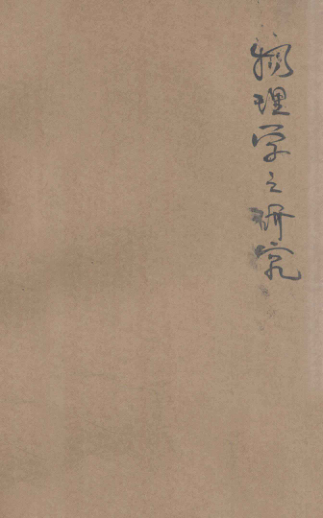 物理学之研究